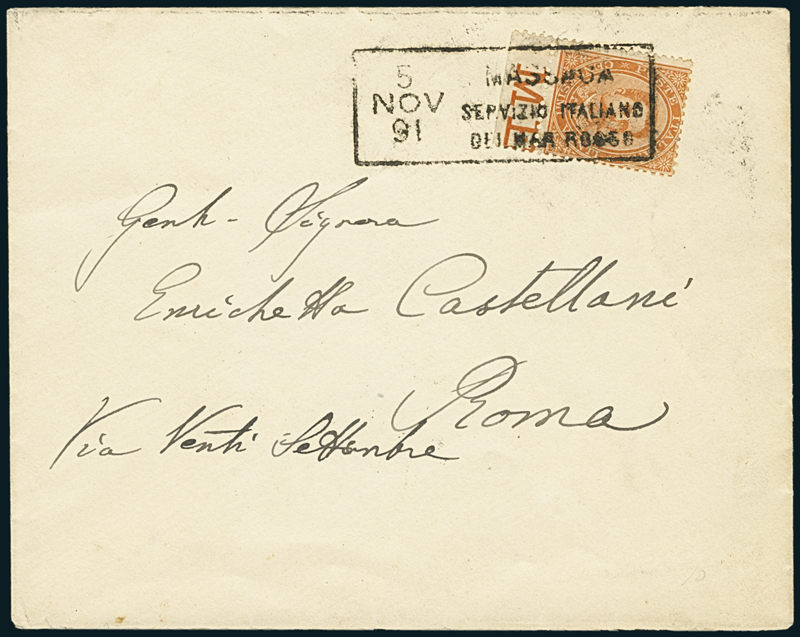 5 MASSAUA
NOV SERVIZIO ITALIANO
91 DEL MAR ROSSO
Gent- Signora
Enrichetta Castellani
Roma
Via Venti Settembre